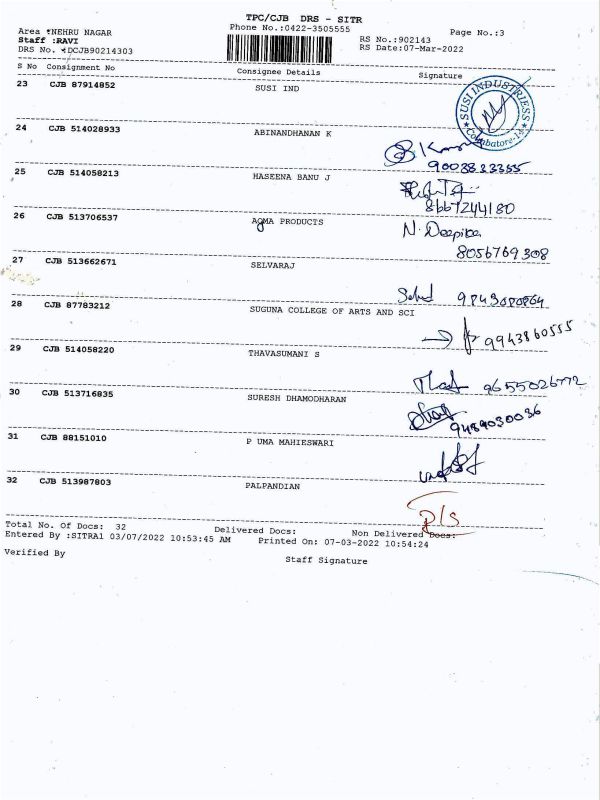 TPC/CJB DRS - SITR
Area :NEHRU NAGAR Phone No.:0422-3505555 Page No.:3
Staff :RAVI RS No.:902143
DRS No. :DCJB90214303 RS Date:07-Mar-2022
S No Consignment No Consignee Details Signature
23 CJB 87914852 SUSI IND
SUSI INDUSTRIESS
Coimbatore-14
24 CJB 514028933 ABINANDHANAN K
9003833355
25 CJB 514058213 HASEENA BANU J
8667244180
26 CJB 513706537 AGMA PRODUCTS N. Deepika
8056769308
27 CJB 513662671 SELVARAJ
9843080864
28 CJB 87783212 SUGUNA COLLEGE OF ARTS AND SCI
9943860555
29 CJB 514058220 THAVASUMANI S
9655026772
30 CJB 513716835 SURESH DHAMODHARAN
9489030036
31 CJB 88151010 P UMA MAHIESWARI
32 CJB 513987803 PALPANDIAN
P/S
Total No. Of Docs: 32 Delivered Docs: Non Delivered Docs:
Entered By :SITRA1 03/07/2022 10:53:45 AM Printed On: 07-03-2022 10:54:24
Verified By Staff Signature